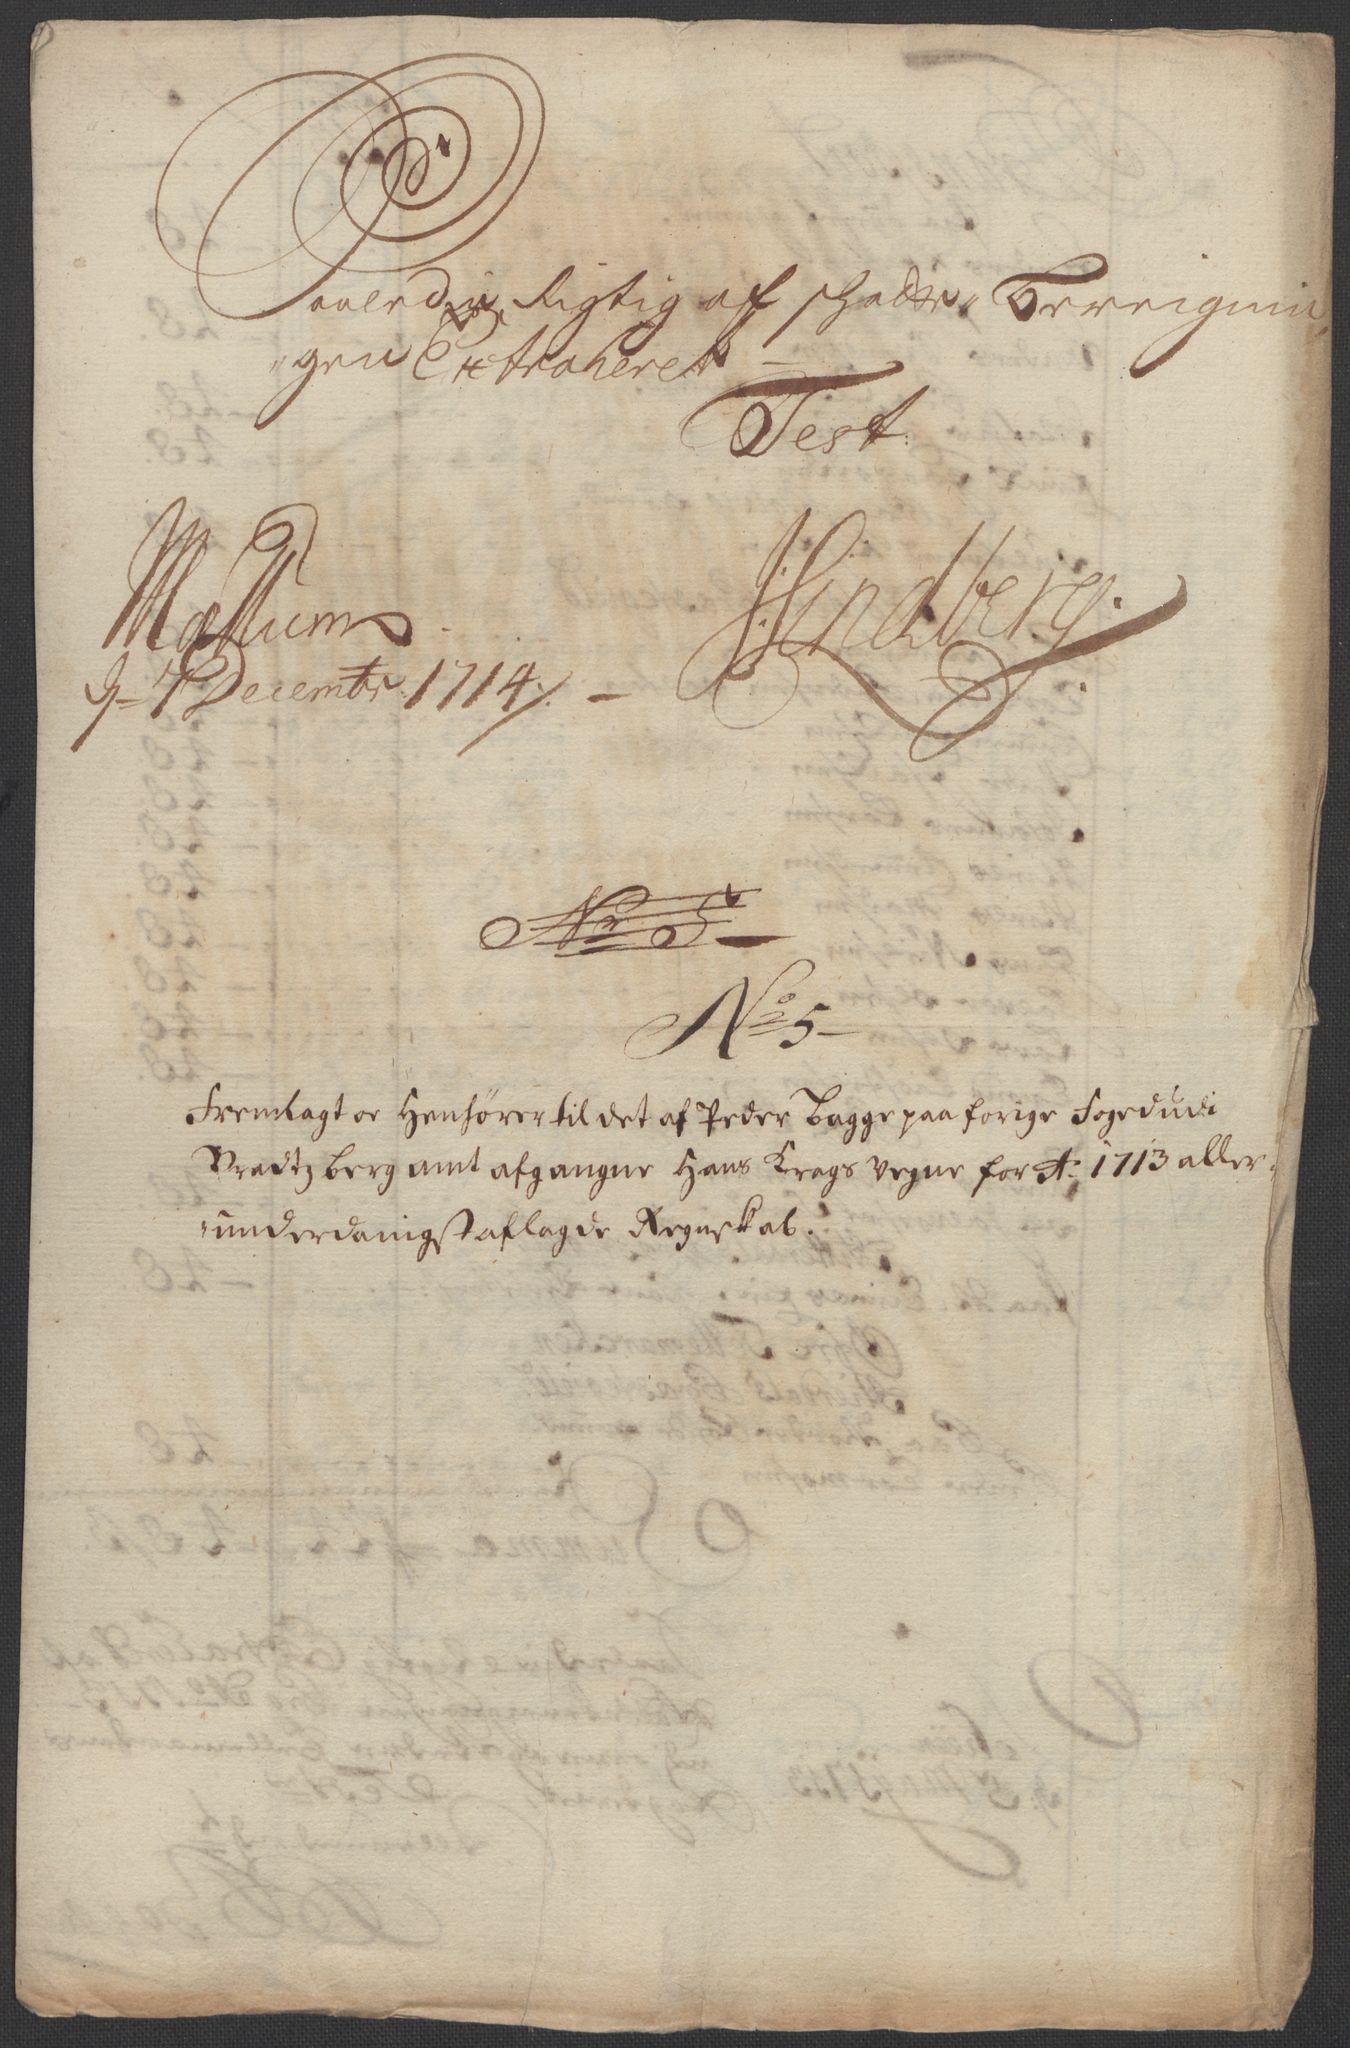 Saaledis Rigtig af schatte Bereignin,
"gen Extraheret –
Test
Mæstum
d: 7 December 1714
JLindberg.
No 5
No 5
Fremlagt oc Henhører til det af Peder Bagge paa forige Foged udi
Bradtzberg amt afgangne Hans Krags Vegne for Ao 1713 aller-
underdanigst aflagde Regnskab.